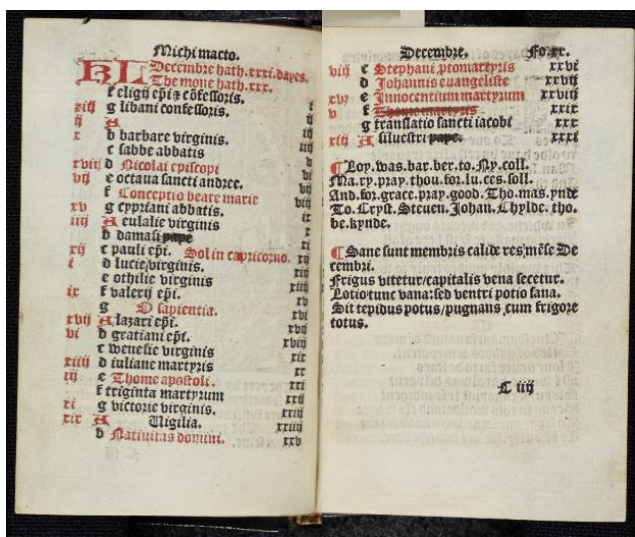 Michi macto.
KL Decembre hath .xxxi. dayes.
The mone hath .xxx.
f eligij epi & cõfessoris. i
xiij g libani confessoris. ij
ij A iij
x b barbare virginis. iiij
c sabbe abbatis v
xviij d Nicolai episcopi vi
vij e octaua sancti andree. vij
f Conceptio beate marie viij
xv g cypriani abbatis. ix
iiij A eulalie virginis x
b damasi pape xi
xij c pauli epi. Sol in capricorno. xij
i d lucie virginis. xiij
e othilie virginis xiiij
ix f valerij epi. xv
g O sapientia. xvi
xvij A lazari epi. xvij
vi b gratiani epi. xviij
c wenesie virginis xix
xiiij d iuliane martyris xx
iij e Thome apostoli. xxi
f triginta martyrum xxij
xi g victorie virginis. xxiij
xix A Uigilia. xxiiij
b Natiuitas domini. xxv
Decembre. Fo.xx.
viij c Stephani ptomartyris xxvi
d Johannis euangeliste xxvij
xvi e Innocentium martyrum xxviij
v f Thome martyris xxix
g translatio sancti iacobi xxx
xiij A siluestri pape. xxxi
¶ Loy. was. bar. ber. to. Ny. coll.
Ma. ry. pray. thou. for. lu. ces. soll.
And. for. grace. pray. good. Tho. mas. ynde
To. Cryst. Steuen. Johan. Chylde. tho.
be. kynde.
¶ Sane sunt membris calide res mẽse De
cembri.
Frigus vitetur/capitalis vena secetur.
Lotio tunc vana: sed ventri potio sana.
Sit tepidus potus/pugnans cum frigore
totus.
C iiij